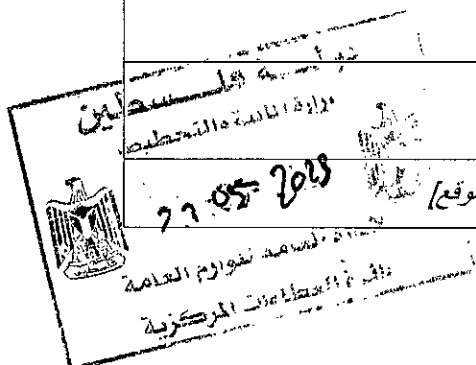 دولة فلسطين
وزارة المالية والتخطيط
22 05 2023
العامة للوازم العامة
دائرة العطاءات المركزية
موقع/